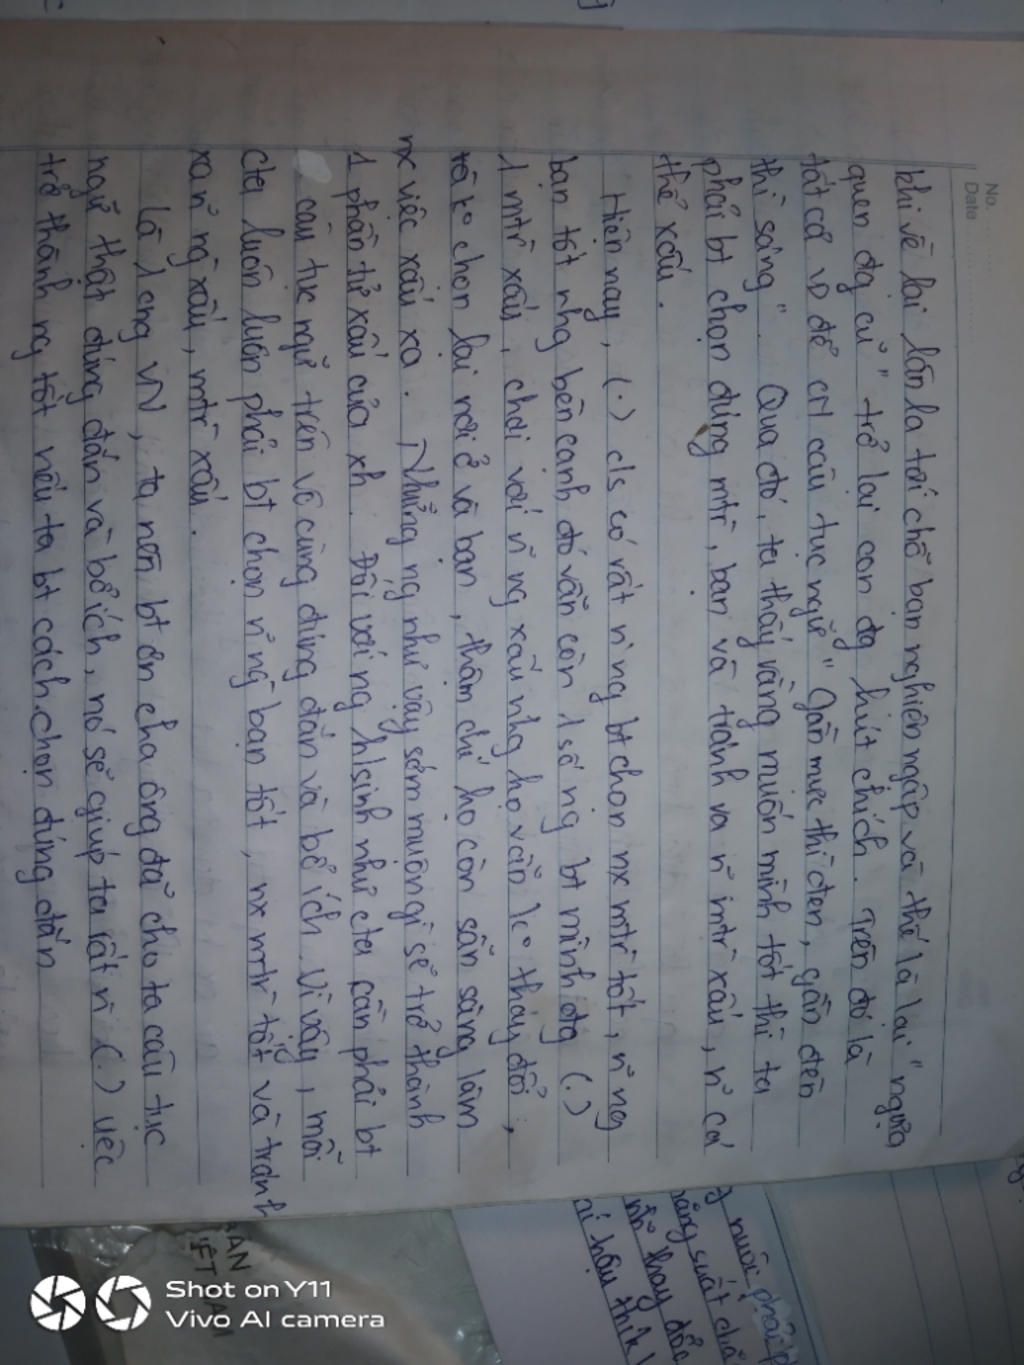 No.
Date
khi về lại lân la tới chỗ bạn nghiện ngập và thế là lại "ngựa
quen đg cũ" trở lại con đg hút chích. Trên đó là
tất cả VD để CM câu tục ngữ "Gần mực thì đen, gần đèn
thì sáng". Qua đó, ta thấy rằng muốn mình tốt thì ta
phải bt chọn đúng mtr, bạn và tránh xa n~ mtr xấu, n~ cá
thể xấu.
Hiện nay, (.) c/s có rất n` ng bt chọn nx mtr tốt, n~ ng
bạn tốt nhg bên cạnh đó vẫn còn 1 số ng bt mình đg (.)
1 mtr xấu, chơi với n~ ng xấu nhg họ vẫn ko thay đổi,
ko chọn lại nơi ở và bạn, thậm chí họ còn sẵn sàng làm
nx việc xấu xa. Những ng như vậy sớm muộn gì sẽ trở thành
1 phần tử xấu của xh. Đối với ng h/sinh như cta cần phải bt
câu tục ngữ trên vô cùng đúng đắn và bổ ích. Vì vậy, mỗi
cta luôn luôn phải bt chọn n~ ng bạn tốt, nx mtr tốt và tránh
xa n~ ng xấu, mtr xấu.
Là 1 cng VN, ta nên bt ơn cha ông đã cho ta câu tục
ngữ thật đúng đắn và bổ ích, nó sẽ giúp ta rất n` (.) việc
trở thành ng tốt nếu ta bt cách chọn đúng đắn
nuôi phải
năng suất
thay đổi
hậu
Shot on Y11
Vivo AI camera